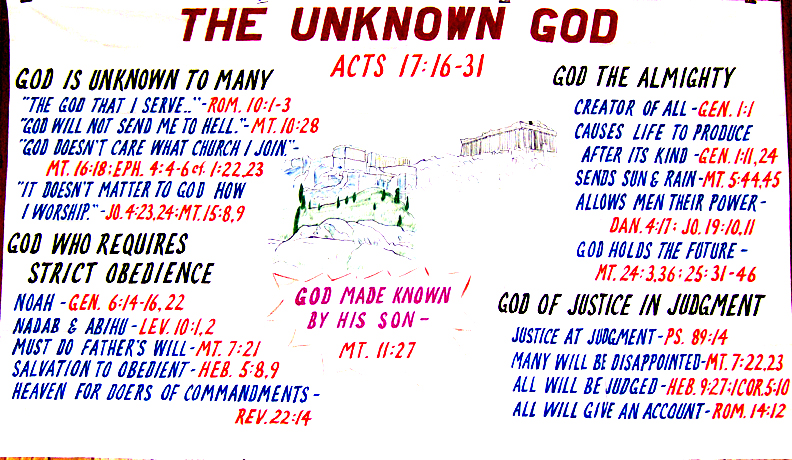 THE UNKNOWN GOD
ACTS 17:16-31
GOD IS UNKNOWN TO MANY
"THE GOD THAT I SERVE.."-ROM. 10:1-3
"GOD WILL NOT SEND ME TO HELL."-MT. 10:28
"GOD DOESN'T CARE WHAT CHURCH I JOIN"-
MT. 16:18: EPH. 4:4-6 cf. 1:22,23
"IT DOESN'T MATTER TO GOD HOW
I WORSHIP."-JO. 4:23,24: MT. 15:8,9
GOD WHO REQUIRES
STRICT OBEDIENCE
NOAH -GEN. 6:14-16,22
NADAB & ABIHU -LEV. 10:1,2
MUST DO FATHER'S WILL -MT. 7:21
SALVATION TO OBEDIENT -HEB. 5:8,9
HEAVEN FOR DOERS OF COMMANDMENTS -
REV. 22:14
GOD MADE KNOWN
BY HIS SON -
MT. 11:27
GOD THE ALMIGHTY
CREATOR OF ALL -GEN. 1:1
CAUSES LIFE TO PRODUCE
AFTER ITS KIND -GEN. 1:11,24
SENDS SUN & RAIN -MT. 5:44,45
ALLOWS MEN THEIR POWER -
DAN. 4:17: JO. 19:10,11
GOD HOLDS THE FUTURE -
MT. 24:3,36: 25:31-46
GOD OF JUSTICE IN JUDGMENT
JUSTICE AT JUDGMENT -PS. 89:14
MANY WILL BE DISAPPOINTED -MT. 7:22,23
ALL WILL BE JUDGED -HEB. 9:27: 1COR. 5:10
ALL WILL GIVE AN ACCOUNT -ROM. 14:12